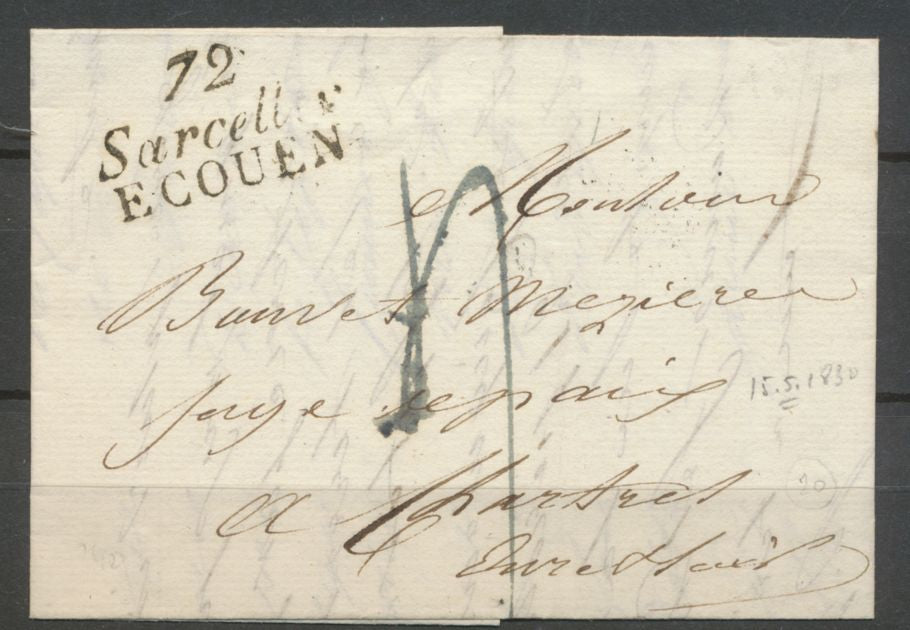 72
Sarcelles
ECOUEN
Monsieur
Bonnet Mezieres
juge de paix
15.5.1830
a Chartres
20
Eure et Loir